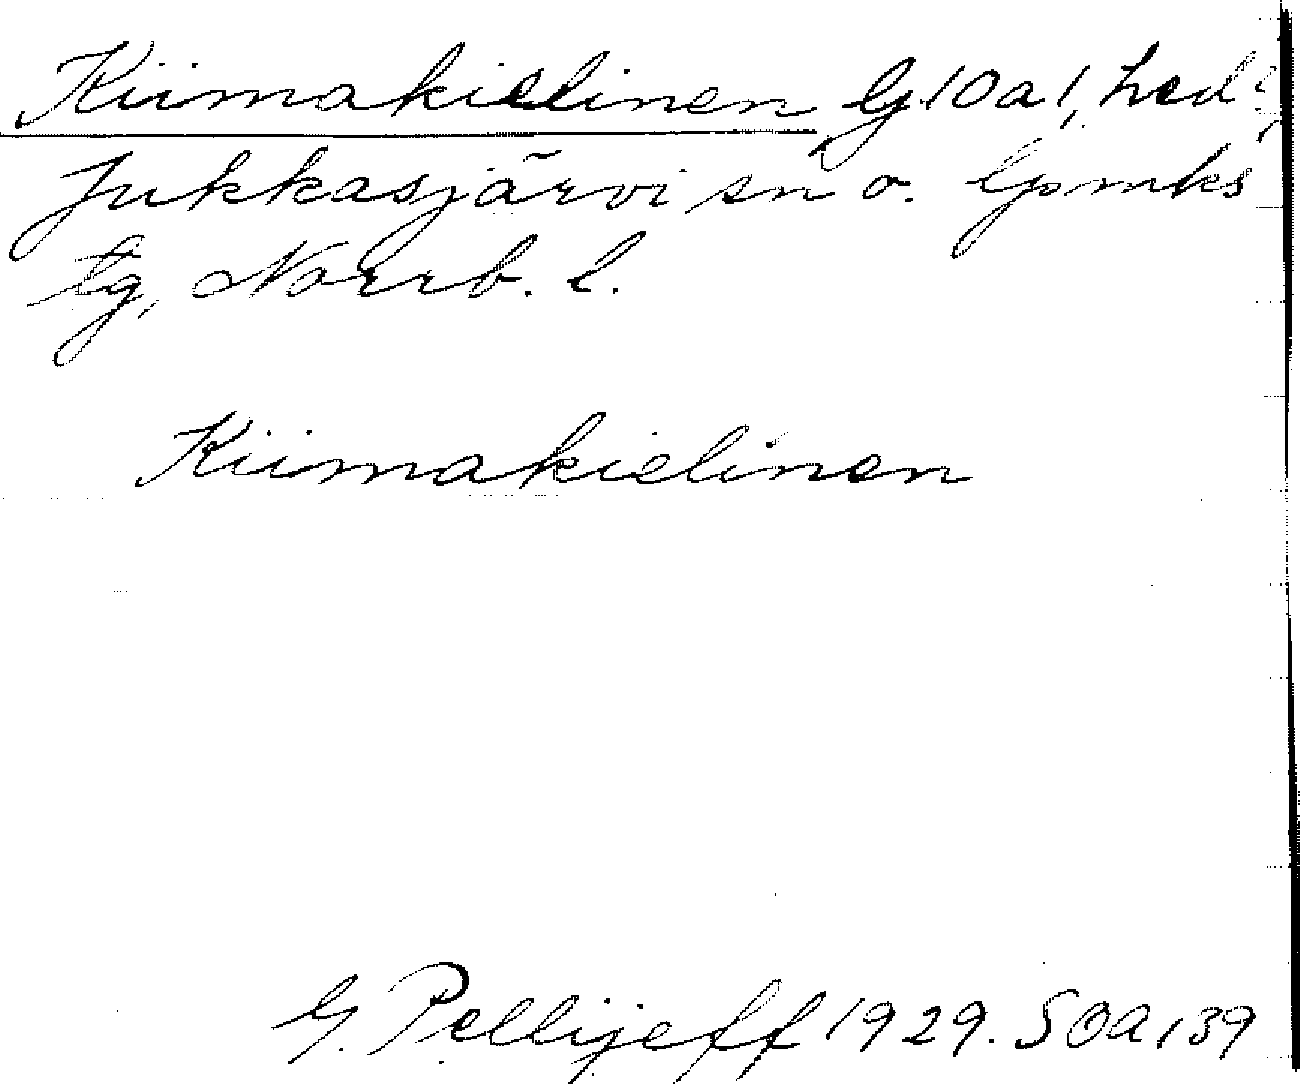 Kiimakielinen, G 10 a 1, hed?,
Jukkasjärvi sn o. lpmks
tg, Norrb. l.
Kiimakielinen
G. Pellijeff 1929. SOA 139